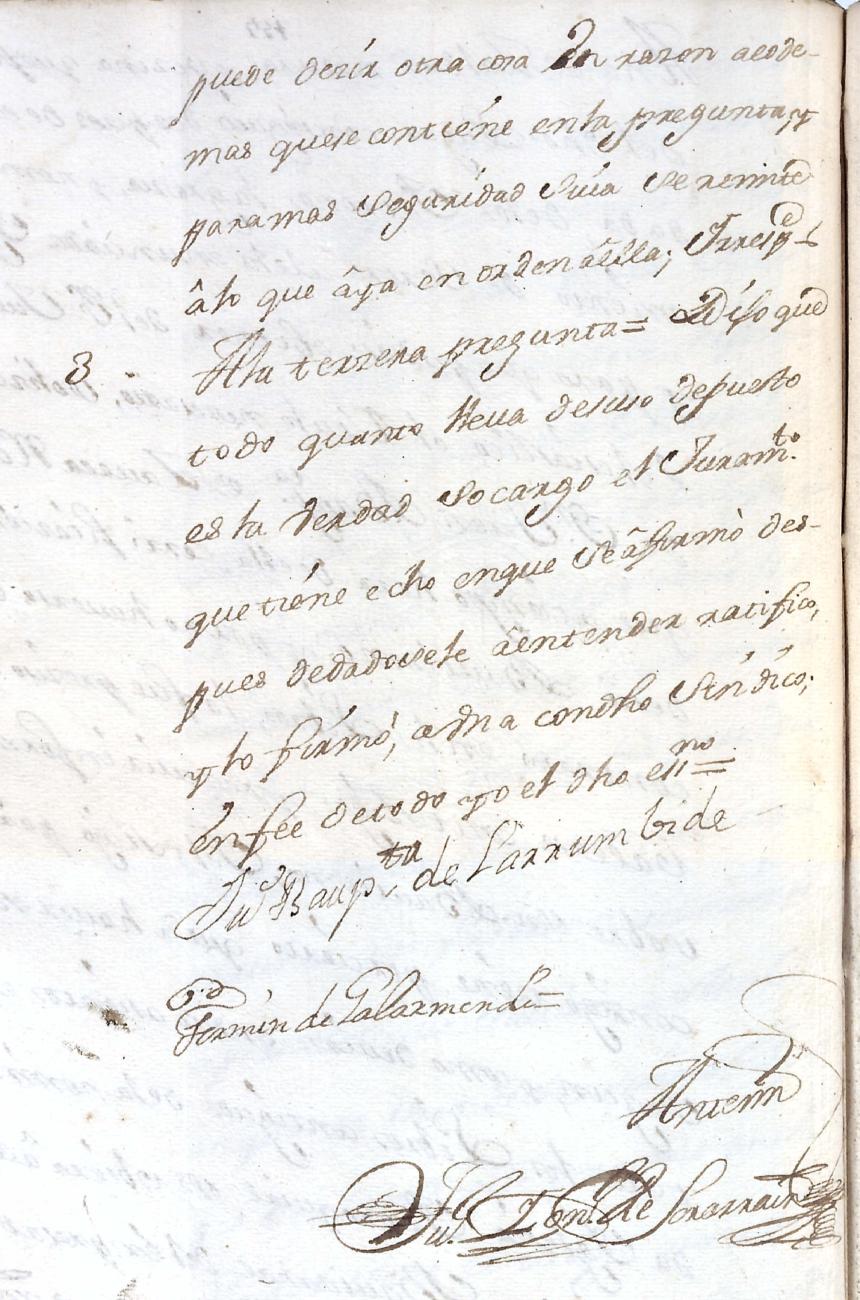 puede dezir otra cosa En razon alode-
mas quese contiene enla pregunta, y
para mas Seguridad Suia Se remite
âlo que âya en orden âella; Yrresp.de
3 Ala terzera pregunta= Dijo que
todo quanto lleua desuso depuesto
es la verdad Socargo el Juramto
que tiene echo enque Seâfirmò des-
pues dedadosele âentender ratifico,
y lo firmò, condho Sindico;
en fee detodo yo el dho essno=
Jun Baupta de Larrumbide
Fermin de Galarmendi=
Antemi
Jun de Sorarrain